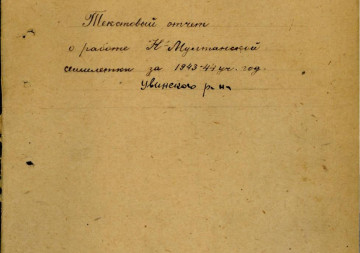 Текстовый отчет
о работе Н-Мултанской
семилетки за 1943-44 уч. год.
Увинского р-на